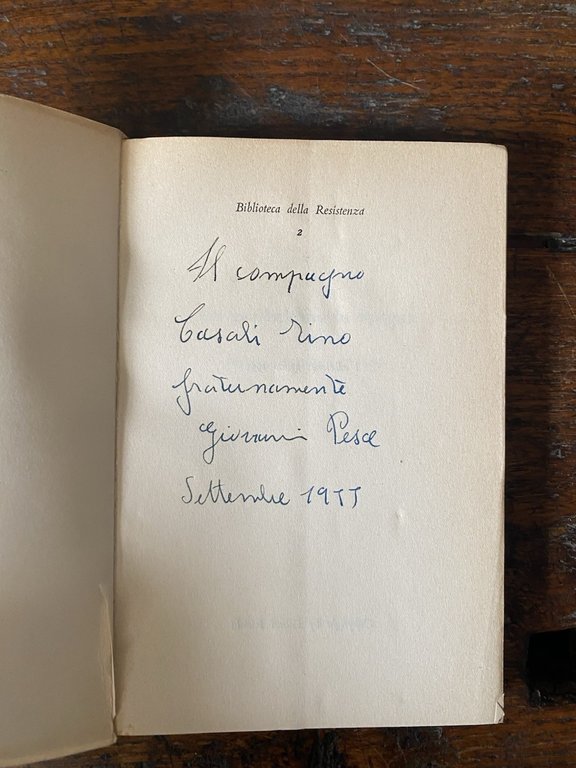 Biblioteca della Resistenza
2
Al compagno
Casali Rino
fraternamente
Giovanni Pesce
Settembre 1955